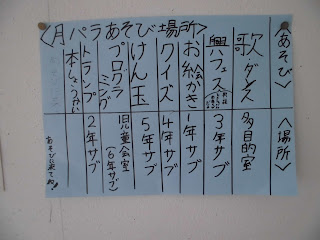 〈月パラあそび場所〉
〈あそび〉
〈場所〉
歌・ダンス
多目的室
興フェス
3年サブ
お絵かき
1年サブ
クイズ
4年サブ
けん玉
5年サブ
プログラミング
児童会室
(6年サブ)
トランプ
2年サブ
本しょうかい
あそびに来てね!